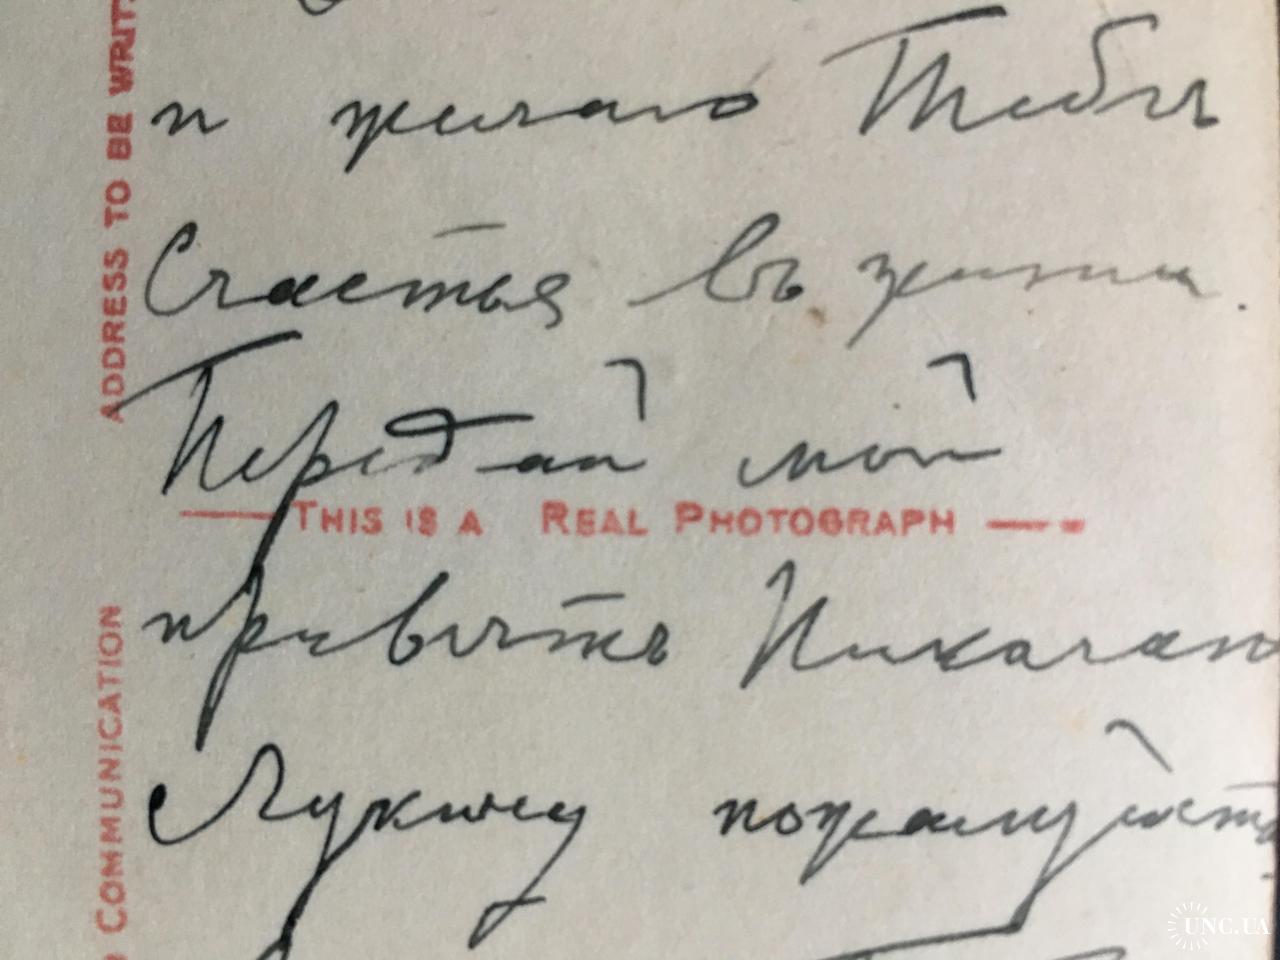 и желаю Тебѣ
Счастья въ жизни.
Передай мой
THIS IS A REAL PHOTOGRAPH
привѣтъ Николаю
Лукичу пожалуйста
ADDRESS TO BE WRIT
COMMUNICATION
UNC.UA